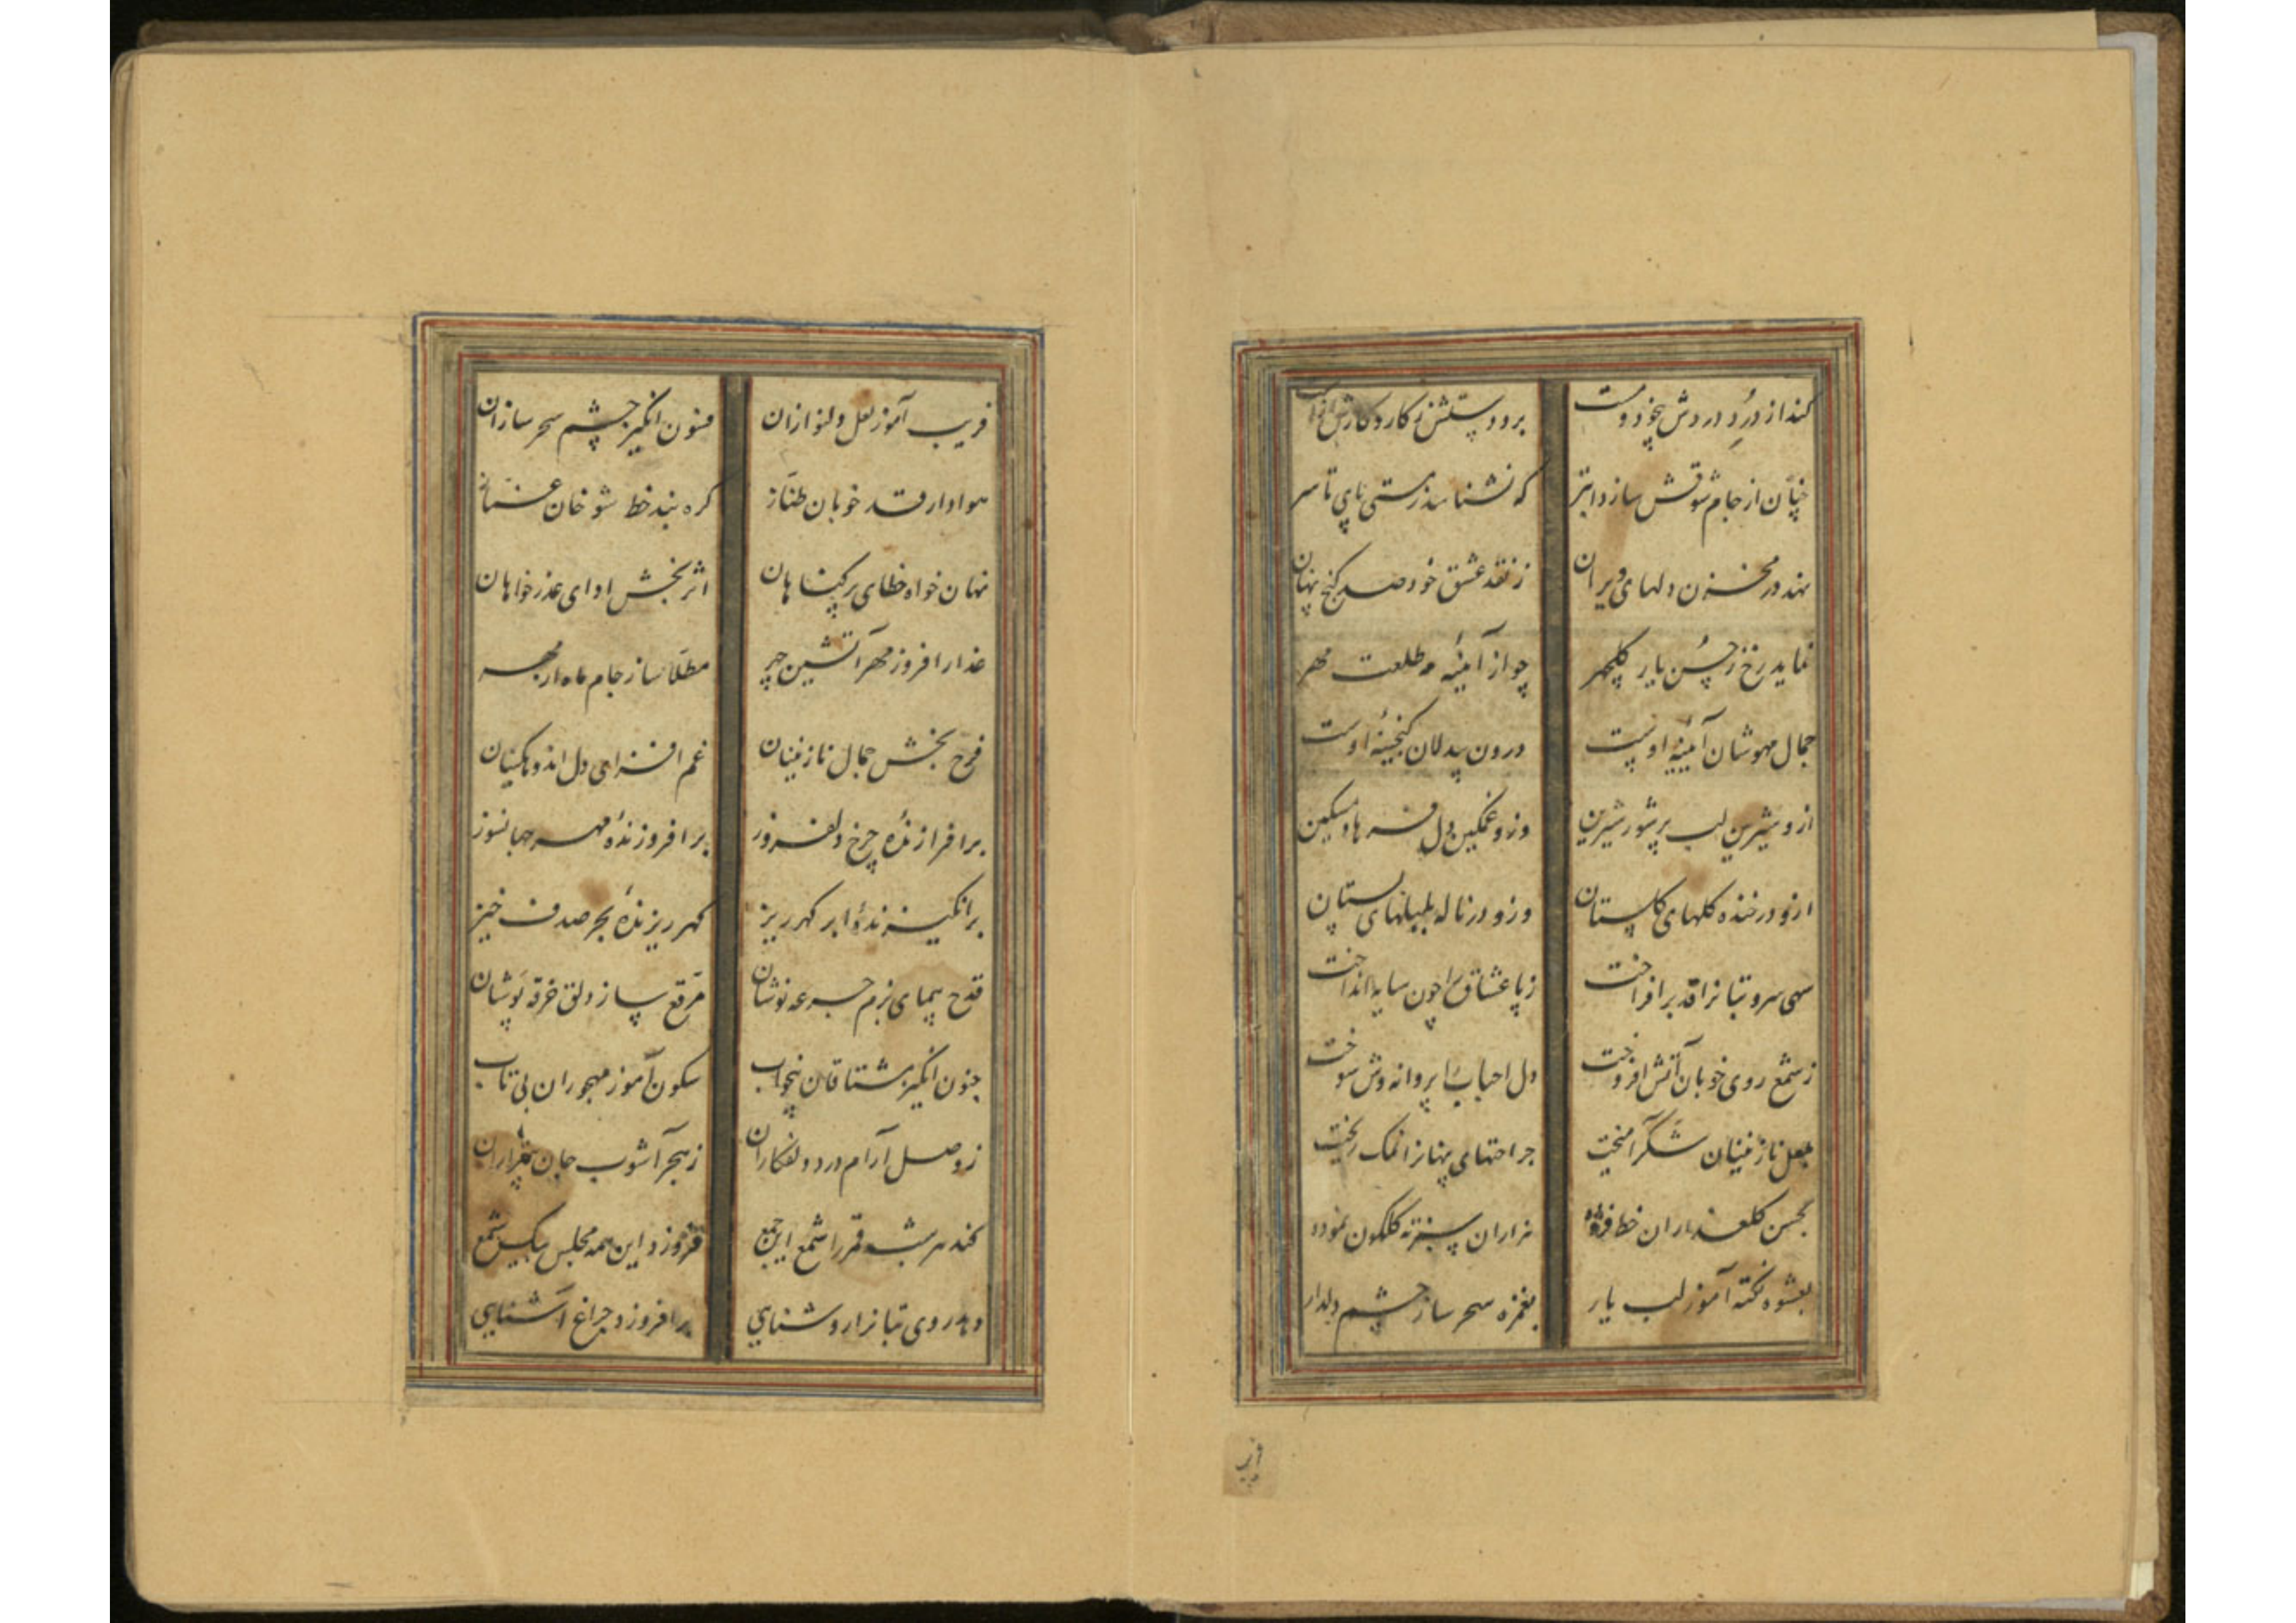 کند از دُردِ دردش بیخود و مست برد دستش ز کار و کارش از دست
چنان از جام شوقش سازد ابتر که نشناسد ز مستی پای تا سر
نهد در مخزن دلهای ویران ز نقد عشق خود صد گنج پنهان
نماید رخ ز حُسن یار گلچهر چو از آئینهٔ مه طلعت مهر
جمال مهوشان آئینهٔ اوست درون بیدلان گنجینهٔ اوست
ازو شیرین لب پرشور شیرین وزو غمگین دل فرهاد مسکین
ازو در خنده گلهای گلستان وزو در ناله بلبلهای بستان
سهی سرو بتانرا قد برافراخت ز پا عشاق را چون سایه انداخت
ز شمع روی خوبان آتش افروخت دل احباب را پروانه وش سوخت
بلعل نازنینان شکّر آمیخت جراحتهای پنهانرا نمک ریخت
بحسن گلعذاران خط فزوده هزاران سبزه گلگون نموده
بعشوه نکته آموز لب یار بغمزه سحر ساز چشم دلدار
فریب آموز لعل دلنوازان فسون انگیز چشم سحر سازان
هوادار قد خوبان طنّاز گره بند خط شوخان غمّاز
نهان خواه خطای پر گناهان اثر بخش ادای عذر خواهان
عذار افروز مهر آتشین چهر مطلّا ساز جام ماه از مهر
فرح بخش جمال نازنینان غم افزای دل اندوهگینان
برافرازندهٔ چرخ دلفروز برافروزندهٔ مهر جهانسوز
برانگیزندهٔ ابر گهرریز گهر ریزندهٔ بحر صدف خیز
قدح پیمای بزم جرعه نوشان مرقّع ساز دلق خرقه پوشان
جنون انگیز مشتاقان بیخواب سکون آموز مهجوران بی تاب
ز وصل آرام درد دلفکاران ز هجر آشوب جان بیقراران
کند هر شب قمر را شمع این جمع فروزد این همه مجلس بیک شمع
دهد روی بتانرا روشنایی برافروزد چراغ آشنایی